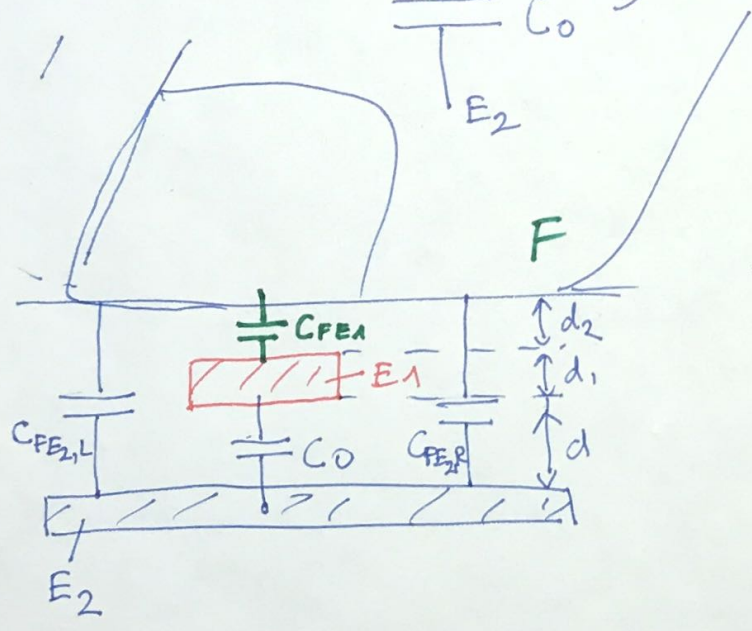 C0
E2
F
CFE1
d2
E1
d1
CFE2,L
C0
CFE2,R
d
E2